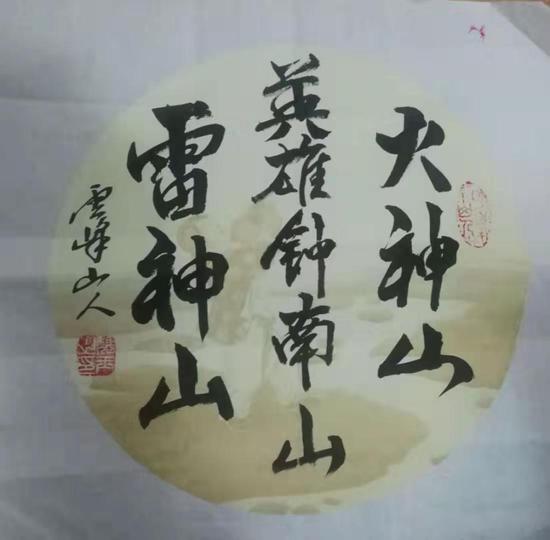 火神山
英雄钟南山
雷神山
雲峰山人